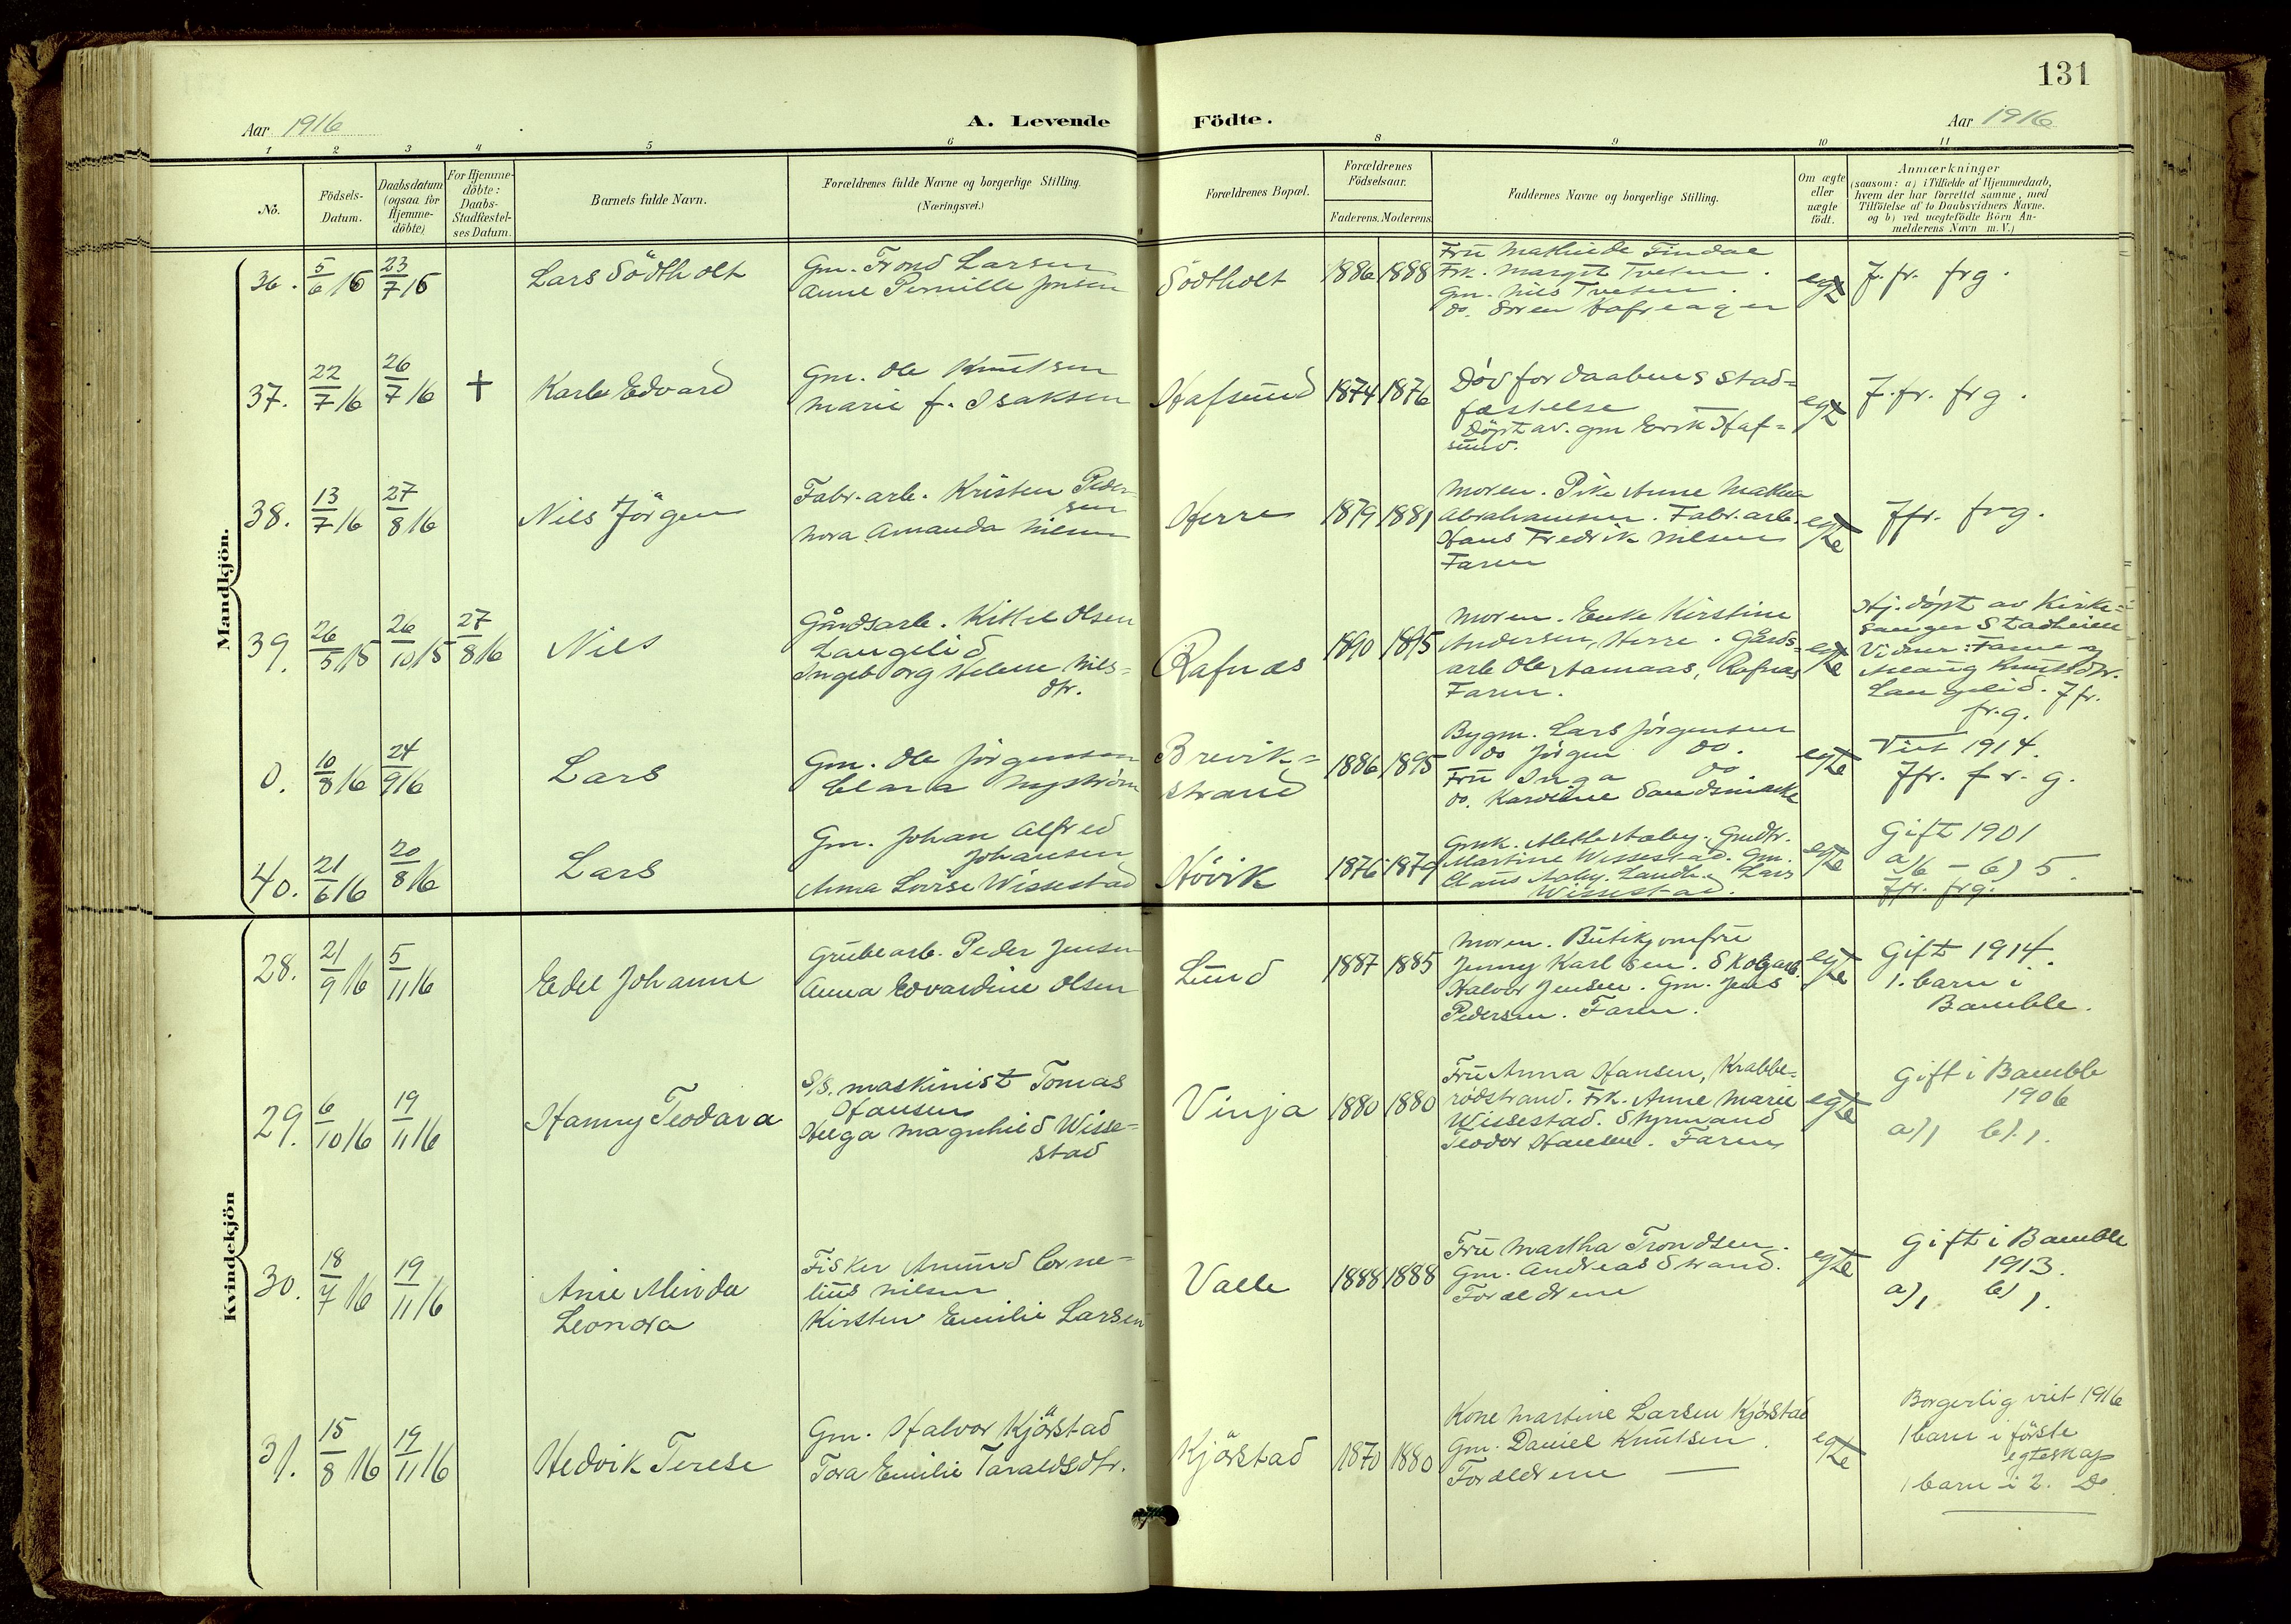 131
Aar 1916
A. Levende
Födte.
Aar 1916
1 2 3 4 5 6 8 9 10 11
No.
Födsels-
Datum.
Daabsdatum
(ogsaa for
Hjemme-
döbte)
For Hjemme-
döbte:
Daabs-
Stadfæstel-
ses Datum.
Barnets fulde Navn.
Forældrenes fulde Navne og borgerlige Stilling.
(Næringsvei.)
Forældrenes Bopæl.
Forældrenes
Födselsaar.
Faderens. Moderens.
Faddernes Navne og borgerlige Stilling.
Om ægte
eller
uægte
födt.
Anmærkninger
(saasom: a) i Tilfælde af Hjemmedaab,
hvem der har forrettet samme, med
Tilföielse af to Daabsvidners Navne.
og b) ved uægtefödte Börn An-
melderens Navn m. V.)
Mandkjön.
36.
5/6 16
23/7 16
Lars Södtholt
Gm. Trond Larsen
Anne Pernille Jensen
Södtholt
1886 1888
Fru Mathilde Findal
Frk. Margit Tvesen.
Gm. Nils Tvesen.
do. Søren Hafreager
egte
J. fr. frg.
37.
22/7 16
26/7 16
+
Karl Edvard
Gm. Ole Knutsen
Marie f. Isaksen
Hafsund
1874 1876
Død for daabens stad=
fæstelse
Döpt av. gm Erik Haf=
sund.
egte
J. fr. frg.
38.
13/7 16
27/8 16
Nils Jörgen
Fabr. arb. Kristen Peder-
sen
Nora Amanda Nilsen
Herre
1879 1881
Moren. Pike Anne Mathea
Abrahamsen. Fabr. arb.
Hans Fredrik Nilsen
Faren
egte
Jfr. frg.
39.
26/5 15
26/10 15
27/8 16
Nils
Gårdsarb. Kittel Olsen
Langelid
Ingeborg Helene Nils=
dtr.
Rafnæs
1890 1895
Moren. Enke Kirstine
Andersen, Herre. Gårds=
arb Ole Aamaas, Rafnæs
Faren.
egte
Hj. döpt av Kirke=
sanger Stadheim
Vidner: Farne og
Aslaug Knutsdtr.
Langelid. Jfr.
fr. g.
0.
10/8 16
24/9 16
Lars
Gm. Ole Jörgensen
Clara Nyström
Brevik=
strand
1886 1895
Bygm. Lars Jörgensen
do Jörgen do.
Fru Inga do
do. Karoline Sandsmække
egte
Viet 1914.
Jfr. f r. g.
40.
21/6 16
20/8 16
Lars
Gm. Johan Alfred
Johansen
Anna Lovise Wissestad
Hövik
1876 1879
Gmk. Mette Aaby. Gmdtr.
Martine Wissestad. Gm.
Claus Aaby. Landh. Lars
Wissestad.
egte
Gift 1901
a) 6 - b) 5.
Jfr. frg.
Kvindekjön
28.
21/9 16
5/11 16
Edel Johanne
Grubearb. Peder Jensen
Anna Edvardine Olsen
Lund
1887 1885
Moren. Butikjomfru
Jenny Karlsen. Skogarb.
Halvor Jensen. Gm. Jens
Pedersen. Faren.
egte
Gift 1914.
1. barn i
Bamble.
29.
6/10 16
19/11 16
Hanny Teodara
S/S. maskinist Tomas
Hansen
Helga Magnhild Wisse=
stad
Vinja
1880 1880
Fru Anna Hansen, Krabbe=
rødstrand. Frk. Anne Marie
Wissestad. Styrmand
Teodor Hansen. Faren
egte
Gift i Bamble
1906
a) 1 b). 1.
30.
18/7 16
19/11 16
Anie Minda
Leonora
Fisker Amund Corne=
lius Nilsen
Kirsten Emilie Larsen
Valle
1888 1888
Fru Martha Trondsen.
Gm. Andreas Strand.
Forældrene
egte
Gift i Bamble
1913.
a) 1 b) 1.
31.
15/8 16
19/11 16
Hedvik Terese
Gm. Halvor Kjörstad
Tora Emilie Taraldsdtr.
Kjörstad
1870 1880
Kone Martine Larsen Kjörstad
Gm. Daniel Knutsen.
Forældrene
egte
Borgerlig viet 1916
1 barn i förste
egteskap
1 barn i 2. Do.